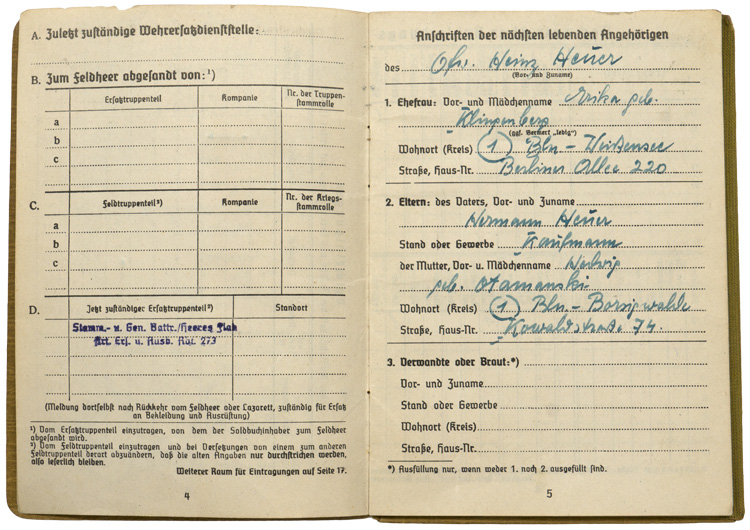 A. Zuletzt zuständige Wehrersatzdienststelle:
B. Zum Feldheer abgesandt von:¹)
Ersatztruppenteil
Kompanie
Nr. der Truppen-
stammrolle
a
b
c
C.
Feldtruppenteil²)
Kompanie
Nr. der Kriegs-
stammrolle
a
b
c
D.
Jetzt zuständiger Ersatztruppenteil²)
Standort
Stamm.- u. Gen. Battr./Heeres Flak
Art. Ers. u. Ausb. Abt. 273
(Meldung dortselbst nach Rückkehr vom Feldheer oder Lazarett, zuständig für Ersatz
an Bekleidung und Ausrüstung)
¹) Vom Ersatztruppenteil einzutragen, von dem der Soldbuchinhaber zum Feldheer
abgesandt wird.
²) Vom Feldtruppenteil einzutragen und bei Versetzungen von einem zum anderen
Feldtruppenteil derart abzuändern, daß die alten Angaben nur durchstrichen werden,
also leserlich bleiben.
Weiterer Raum für Eintragungen auf Seite 17.
4
Anschriften der nächsten lebenden Angehörigen
des Gfr. Heinz Heuer
(Vor- und Zuname)
1. Ehefrau: Vor- und Mädchenname Erika geb.
Klingenberg
(ggf. Vermerk „ledig")
Wohnort (Kreis) (1) Bln - Weißensee
Straße, Haus-Nr. Berliner Allee 220
2. Eltern: des Vaters, Vor- und Zuname
Hermann Heuer
Stand oder Gewerbe Kaufmann
der Mutter, Vor- u. Mädchenname Hedwig
geb. Otamanski
Wohnort (Kreis) (1) Bln - Borsigwalde
Straße, Haus-Nr. 74.
3. Verwandte oder Braut:*)
Vor- und Zuname
Stand oder Gewerbe
Wohnort (Kreis)
Straße, Haus-Nr.
*) Ausfüllung nur, wenn weder 1. noch 2. ausgefüllt sind.
5